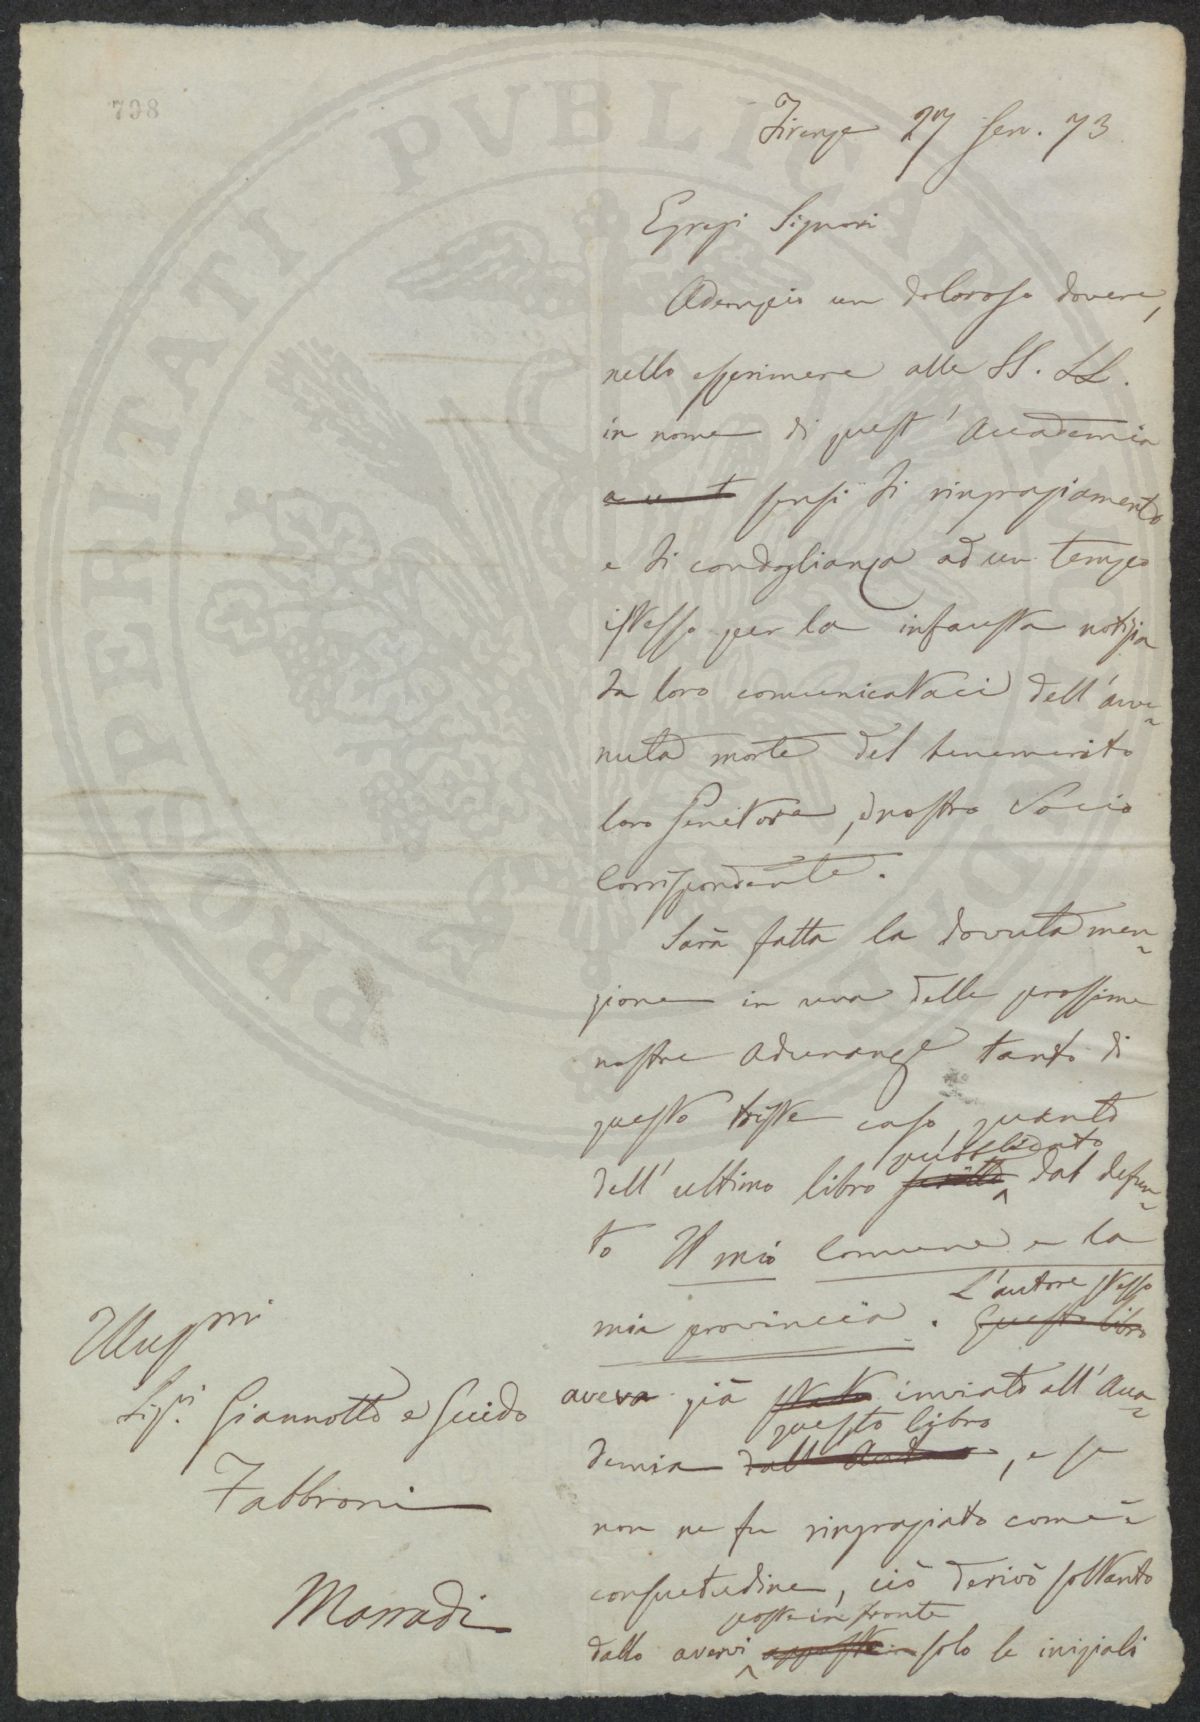 798
Firenze 27 Gen. 73
Egregi Signori
Adempio un doloroso dovere,
nello esprimere alle SS. LL.
in nome di quest'Accademia
sensi di ringraziamento
e di condoglianza ad un tempo
istesso per la infausta notizia
da loro comunicataci dell'avve-
nuta morte del benemerito
loro Genitore, e nostro Socio
Corrispondente.
Sarà fatta la dovuta men-
zione in una delle prossime
nostre adunanze tanto di
questo triste caso, quanto
pubblicato
dell'ultimo libro scritto dal defun-
to Il mio Comune e la
L'autore stesso
mia provincia. Questo libro
aveva già stato inviato all'Acca-
questo libro
demia dall'Autore, e se
non ne fu ringraziato com'è
consuetudine, ciò derivò soltanto
poste in fronte
dallo avervi apposte solo le iniziali
Illus.mi
Sig.ri Giannotto e Guido
Fabbroni
Marradi
PROSPERITATI PVBLICAE AVGENDAE